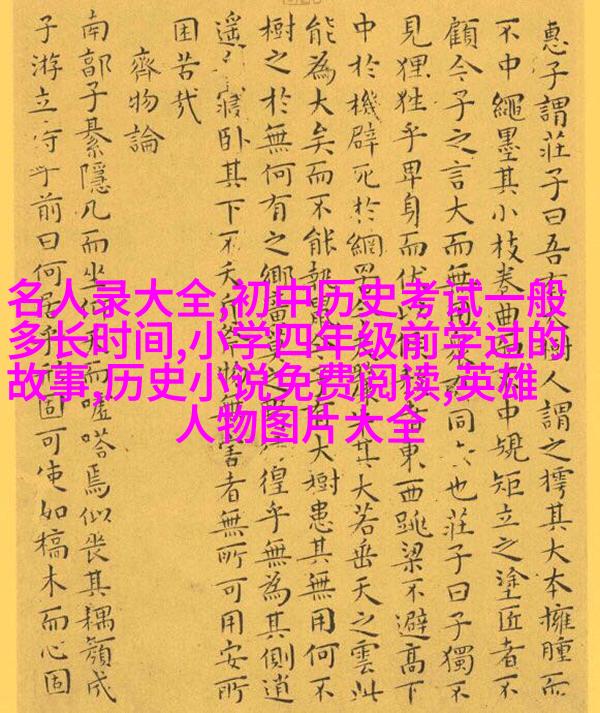 惠子謂莊子曰吾有樹人謂之樗其大本擁腫而
不中繩墨其小枝卷曲而不中規矩立之塗匠者不
顧今子之言大而無用同也莊子曰子獨不
見狸狌乎卑身而伏東西跳梁不避高下
中於機辟死於網罟今其大若垂天之雲此
能為大矣而不能大樹患其無用何不
樹之於無何有之鄉廣莫之徨乎無為其側逍
遙寢臥其下不夭無害者無所可用安所
困苦哉
齊物論
南郭子綦隱几而坐仰天而噓嗒焉似喪其耦顏成
子游立侍乎前曰何居乎固可使如槁木而心固
名人录大全,初中历史考试一般
多长时间,小学四年级前学过的
故事,历史小说免费阅读,英雄
人物图片大全